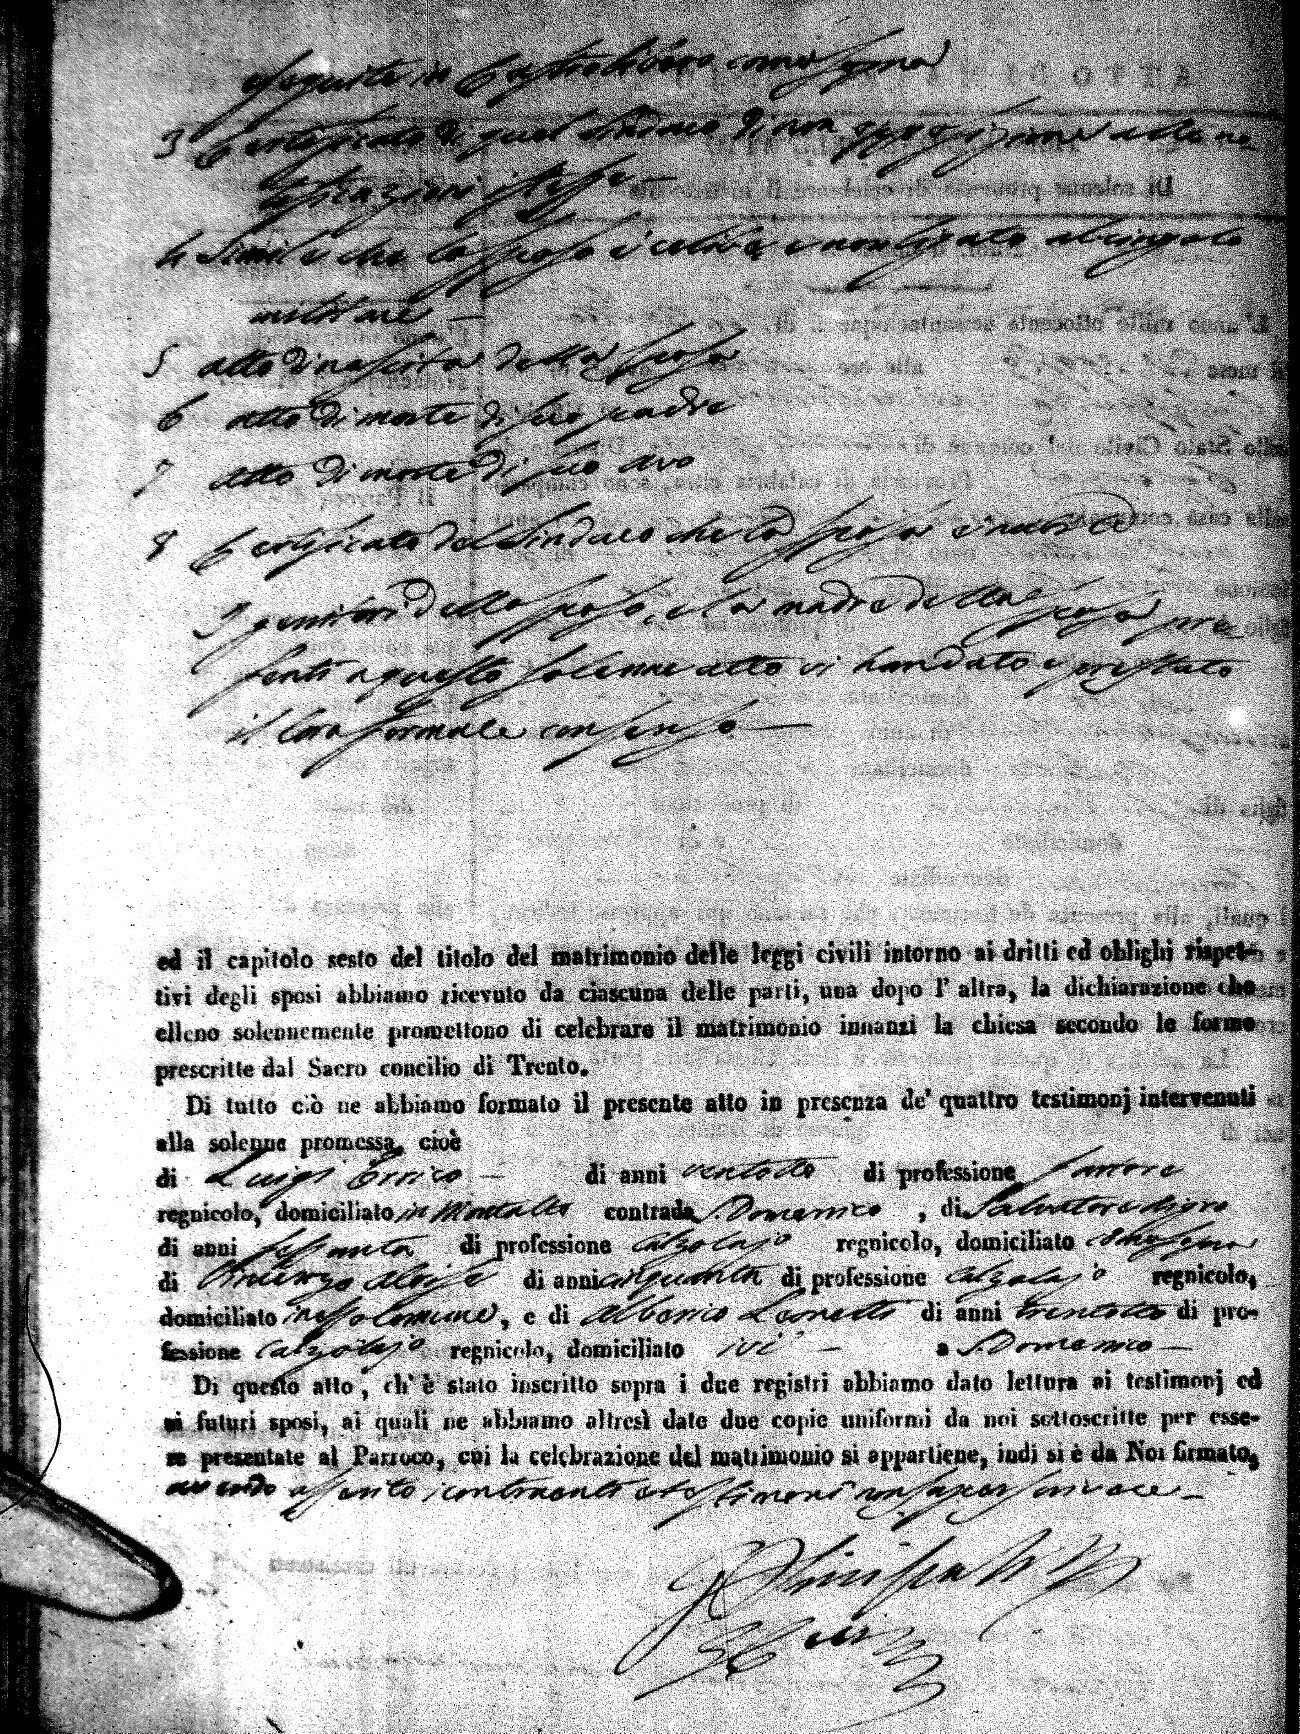 eseguite in Castrolibero come sopra
3 Certificato di quel Sindaco di non opposizione alle ne
desime
4 Simile che lo sposo è celibe e non ligato al cingolo
militare —
5 atto di nascita della sposa
6 atto di morte di suo padre
7 atto di morte di suo avo
8 Certificato del Sindaco che la sposa è
I genitori dello sposo, e la madre della sposa pre
senti a questo solenne atto vi hanno dato e prestato
il loro formale consenso —
ed il capitolo sesto del titolo del matrimonio delle leggi civili intorno ai dritti ed oblighi rispet-
tivi degli sposi abbiamo ricevuto da ciascuna delle parti, una dopo l' altra, la dichiarazione che
elleno solennemente promettono di celebrare il matrimonio innanzi la chiesa secondo le forme
prescritte dal Sacro concilio di Trento.
Di tutto ciò ne abbiamo formato il presente atto in presenza de' quattro testimonj intervenuti
alla solenne promessa, cioè
di Luigi Errico — di anni ventotto di professione sartore
regnicolo, domiciliato in Montalto contrada S. Domenico , di Salvatore
di anni sessanta di professione calzolajo regnicolo, domiciliato
di Vincenzo Aloise di anni cinquanta di professione calzolajo regnicolo,
domiciliato in esso Comune, e di di anni trentotto di pro-
fessione calzolajo regnicolo, domiciliato ivi — a S. Domenico —
Di questo atto, ch' è stato inscritto sopra i due registri abbiamo dato lettura ai testimonj ed
ai futuri sposi, ai quali ne abbiamo altresì date due copie uniformi da noi sottoscritte per esse-
re presentate al Parroco, cui la celebrazione del matrimonio si appartiene, indi si è da Noi firmato,
avendo asserito i contraenti e testimoni non saper scrivere —